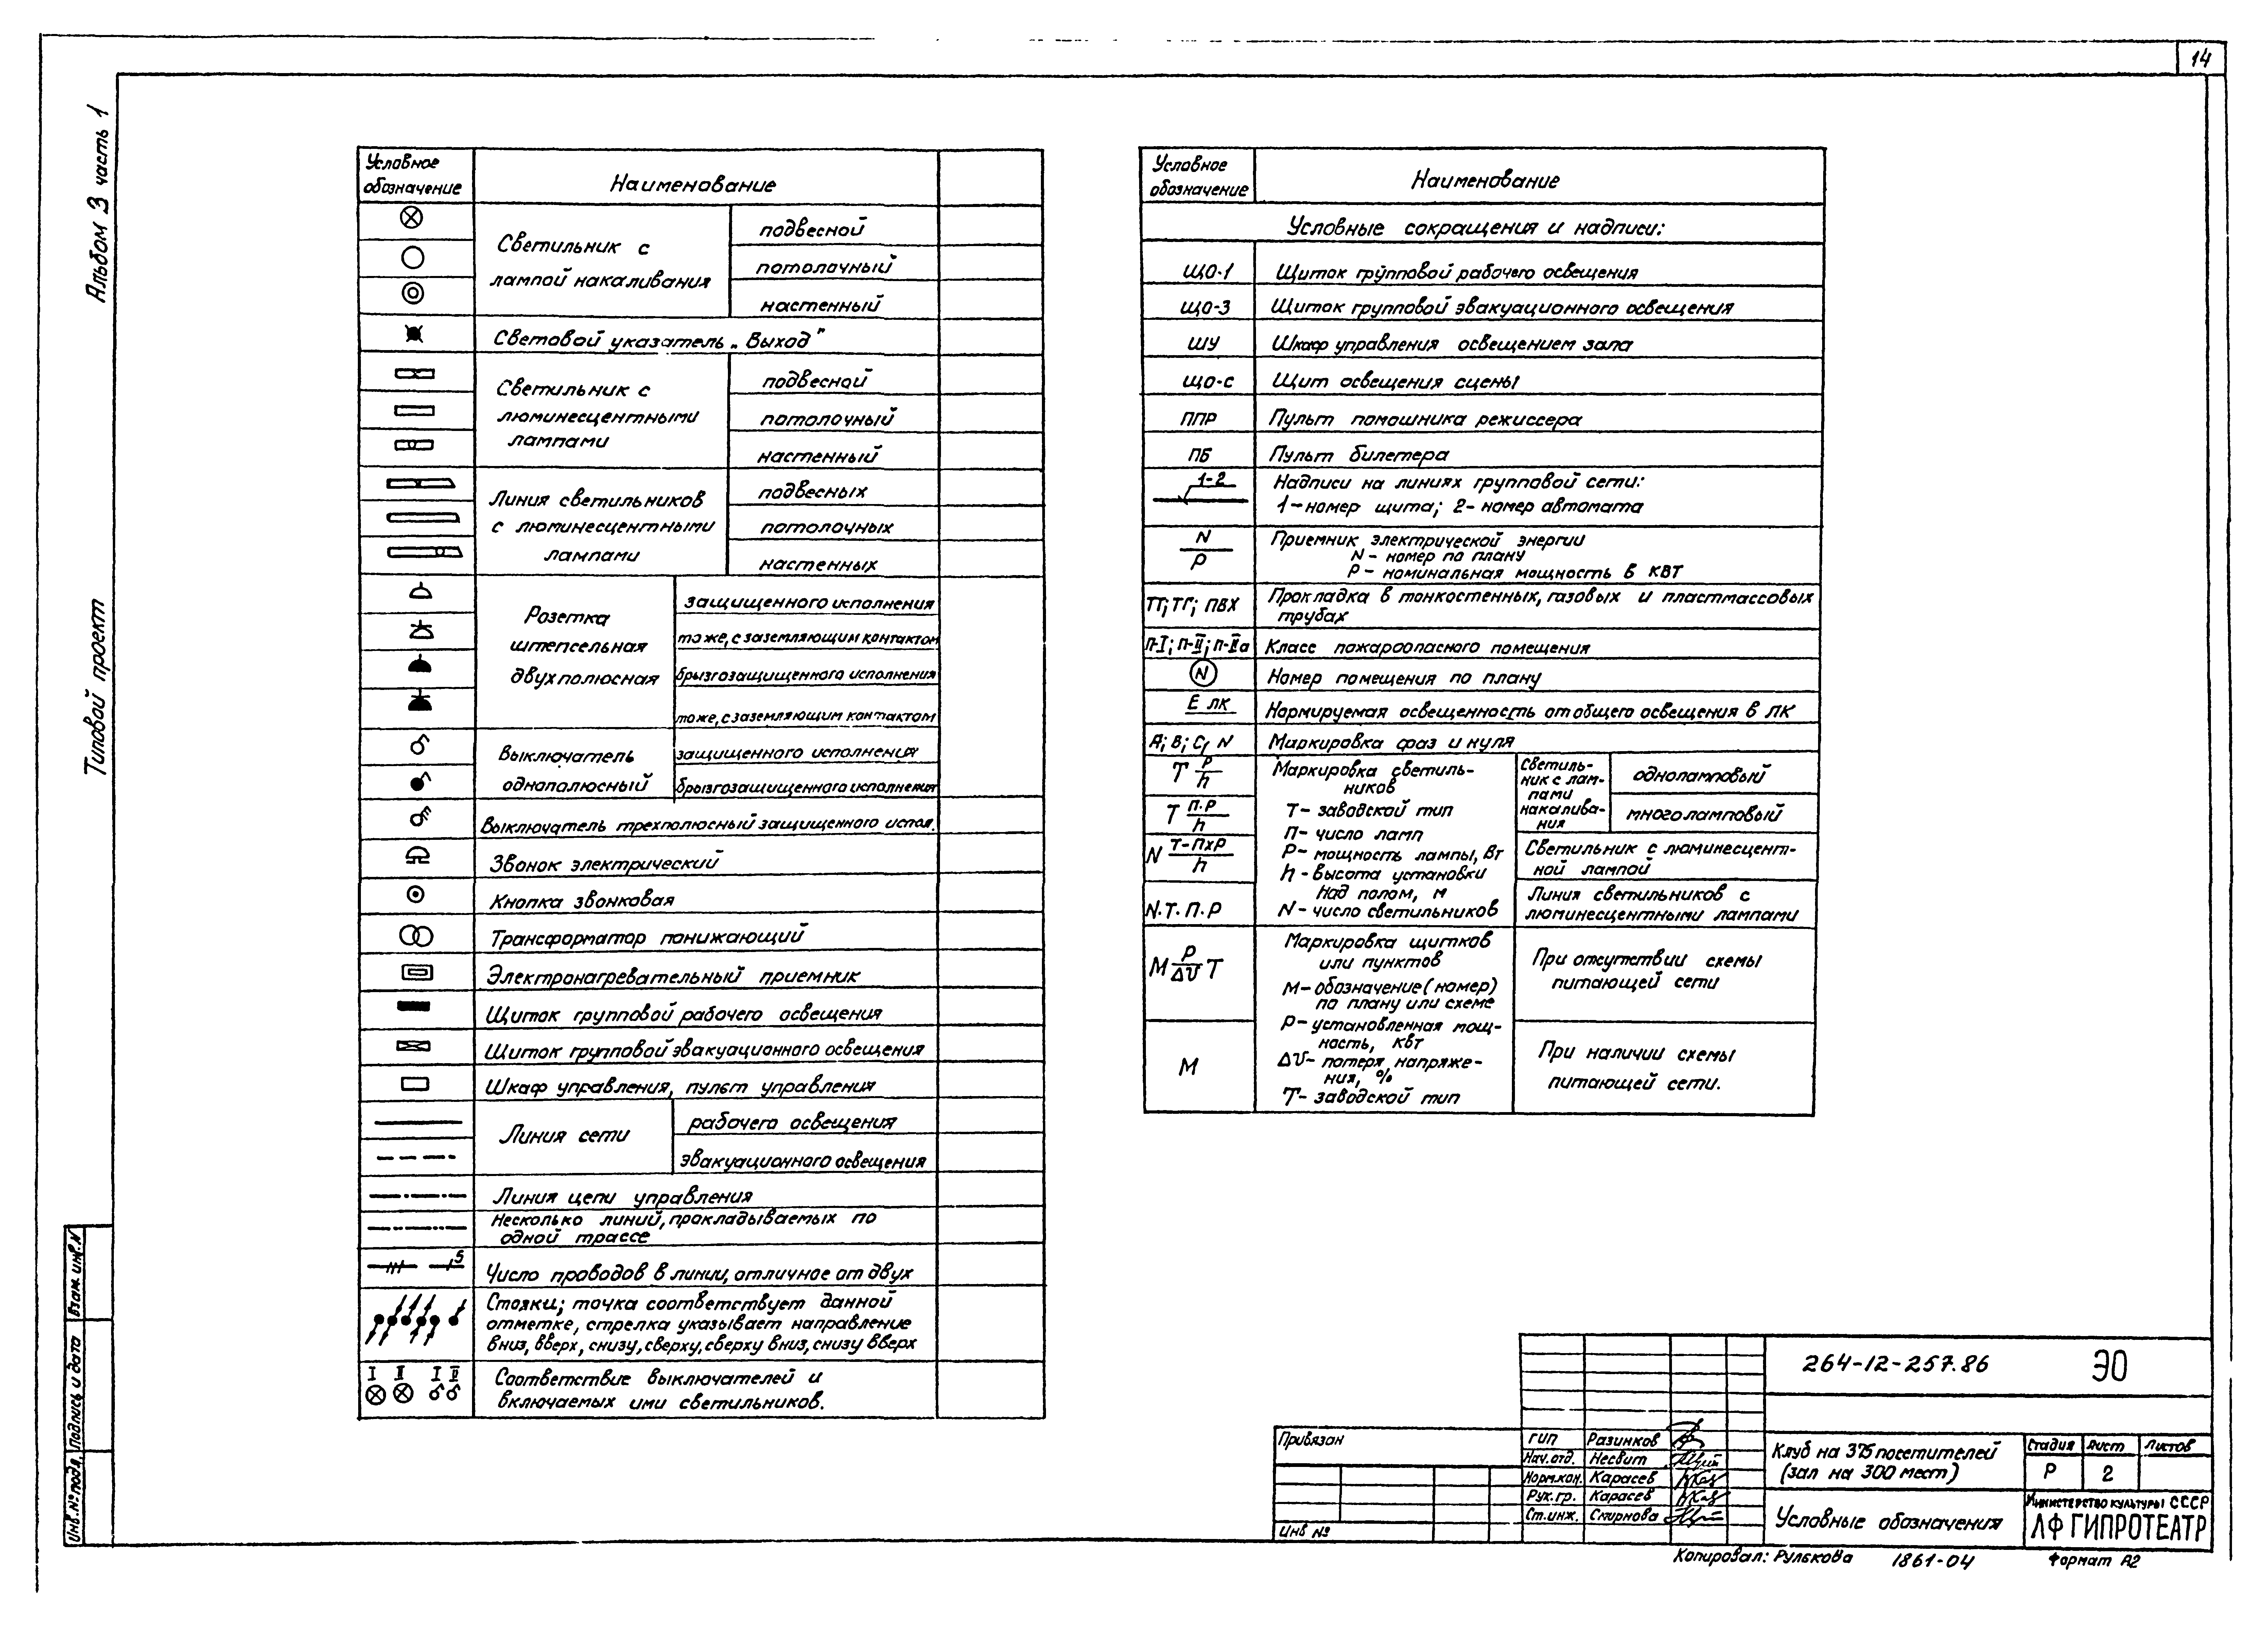 14
Альбом 3 часть 1
Типовой проект
Условное
обозначение
Наименование
Светильник с
лампой накаливания
подвесной
потолочный
настенный
Световой указатель „Выход"
Светильник с
люминесцентными
лампами
подвесной
потолочный
настенный
Линия светильников
с люминесцентными
лампами
подвесных
потолочных
настенных
Розетка
штепсельная
двухполюсная
защищенного исполнения
тоже, с заземляющим контактом
брызгозащищенного исполнения
тоже, с заземляющим контактом
Выключатель
однополюсный
защищенного исполнения
брызгозащищенного исполнения
Выключатель трехполюсный защищенного испол.
Звонок электрический
Кнопка звонковая
Трансформатор понижающий
Электронагревательный приемник
Щиток групповой рабочего освещения
Щиток групповой эвакуационного освещения
Шкаф управления, пульт управления
Линия сети
рабочего освещения
эвакуационного освещения
Линия цепи управления
Несколько линий, прокладываемых по
одной трассе
5
Число проводов в линии, отличное от двух
Стояки; точка соответствует данной
отметке, стрелка указывает направление
вниз, вверх, снизу, сверху, сверху вниз, снизу вверх
I II I II
Соответствие выключателей и
включаемых ими светильников.
Условное
обозначение
Наименование
Условные сокращения и надписи:
ЩО-1 Щиток групповой рабочего освещения
ЩО-3 Щиток групповой эвакуационного освещения
ШУ Шкаф управления освещением зала
ЩО-С Щит освещения сцены
ППР Пульт помошника режиссера
ПБ Пульт билетера
1-2
Надписи на линиях групповой сети:
1-номер щита; 2-номер автомата
N
P
Приемник электрической энергии
N - номер по плану
P - номинальная мощность в КВТ
ТТ; ТГ; ПВХ
Прокладка в тонкостенных, газовых и пластмассовых
трубах
П-I; П-II; П-IIа Класс пожароопасного помещения
N Номер помещения по плану
Е ЛК Нормируемая освещенность от общего освещения в ЛК
А; В; С, N Маркировка фаз и нуля
T P/h
T П.Р/h
N Т-ПхР/h
N.Т.П.Р
Маркировка светиль-
ников
Т- заводской тип
П- число ламп
Р- мощность лампы, Вт
h - высота установки
над полом, м
N- число светильников
Светиль-
ник с лам-
пами
накалива-
ния
одноламповый
многоламповый
Светильник с люминесцент-
ной лампой
Линия светильников с
люминесцентными лампами
М P/ΔU Т
М
Маркировка щитков
или пунктов
М- обозначение (номер)
по плану или схеме
Р- установленная мощ-
ность, кВт
ΔU- потеря напряже-
ния, %
Т- заводской тип
При отсутствии схемы
питающей сети
При наличии схемы
питающей сети.
Взам. инв. N
Подпись и дата
Инв. № подл.
Привязан
Инв №
ГИП Разинков
Нач. отд. Несвит
Норм.кон. Карасев
Рук. гр. Карасев
Ст. инж. Смирнова
264-12-257.86 ЭО
Клуб на 375 посетителей
(зал на 300 мест)
Стадия Лист Листов
Р 2
Условные обозначения
Министерство культуры СССР
ЛФ ГИПРОТЕАТР
Копировал: Рулькова 1861-04 Формат А2